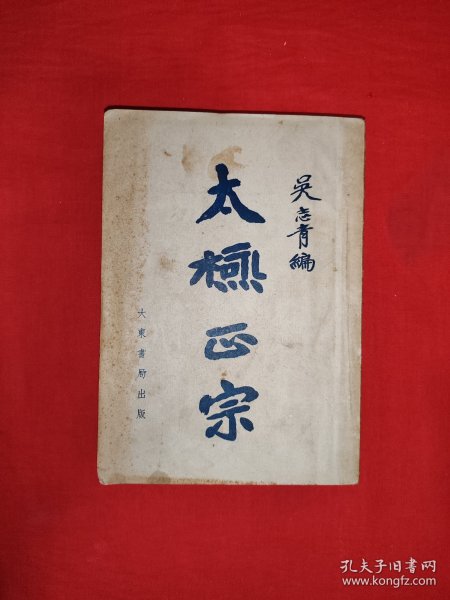 吳志青編
太極正宗
大東書局出版
孔夫子旧书网
www.kongfz.com